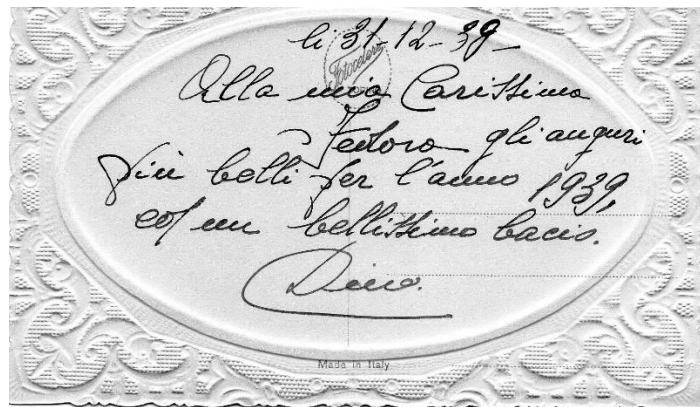 li 31-12-39
Fotocelere
Alla mia Carissima
Fedora gli auguri
più belli per l'anno 1939,
col un bellissimo bacio.
Dino.
Made in Italy